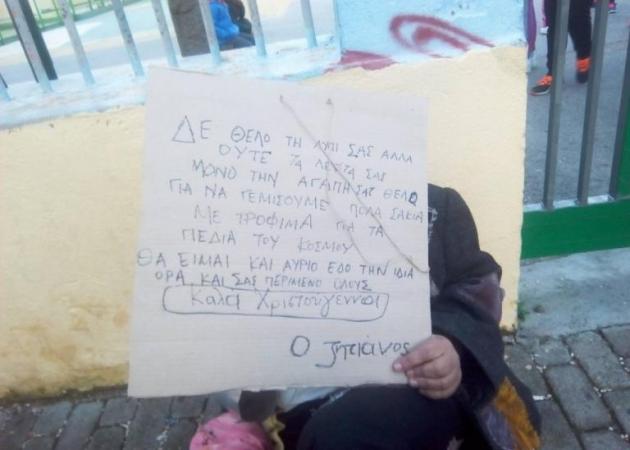 ΔΕ ΘΕΛΟ ΤΗ ΛΥΠΙ ΣΑΣ ΑΛΛΑ
ΟΥΤΕ ΤΑ ΛΕΦΤΑ ΣΑΣ
ΜΟΝΟ ΤΗΝ ΑΓΑΠΗ ΣΑΣ ΘΕΛΟ
ΓΙΑ ΝΑ ΓΕΜΙΣΟΥΜΕ ΠΟΛΑ ΣΑΚΙΑ
ΜΕ ΤΡΟΦΙΜΑ ΓΙΑ ΤΑ
ΠΕΔΙΑ ΤΟΥ ΚΟΣΜΟΥ
ΘΑ ΕΙΜΑΙ ΚΑΙ ΑΥΡΙΟ ΕΔΟ ΤΗΝ ΙΔΙΑ
ΟΡΑ ΚΑΙ ΣΑΣ ΠΕΡΙΜΕΝΟ ΟΛΟΥΣ
Καλα Χριστουγεννα
Ο ζητιάνος